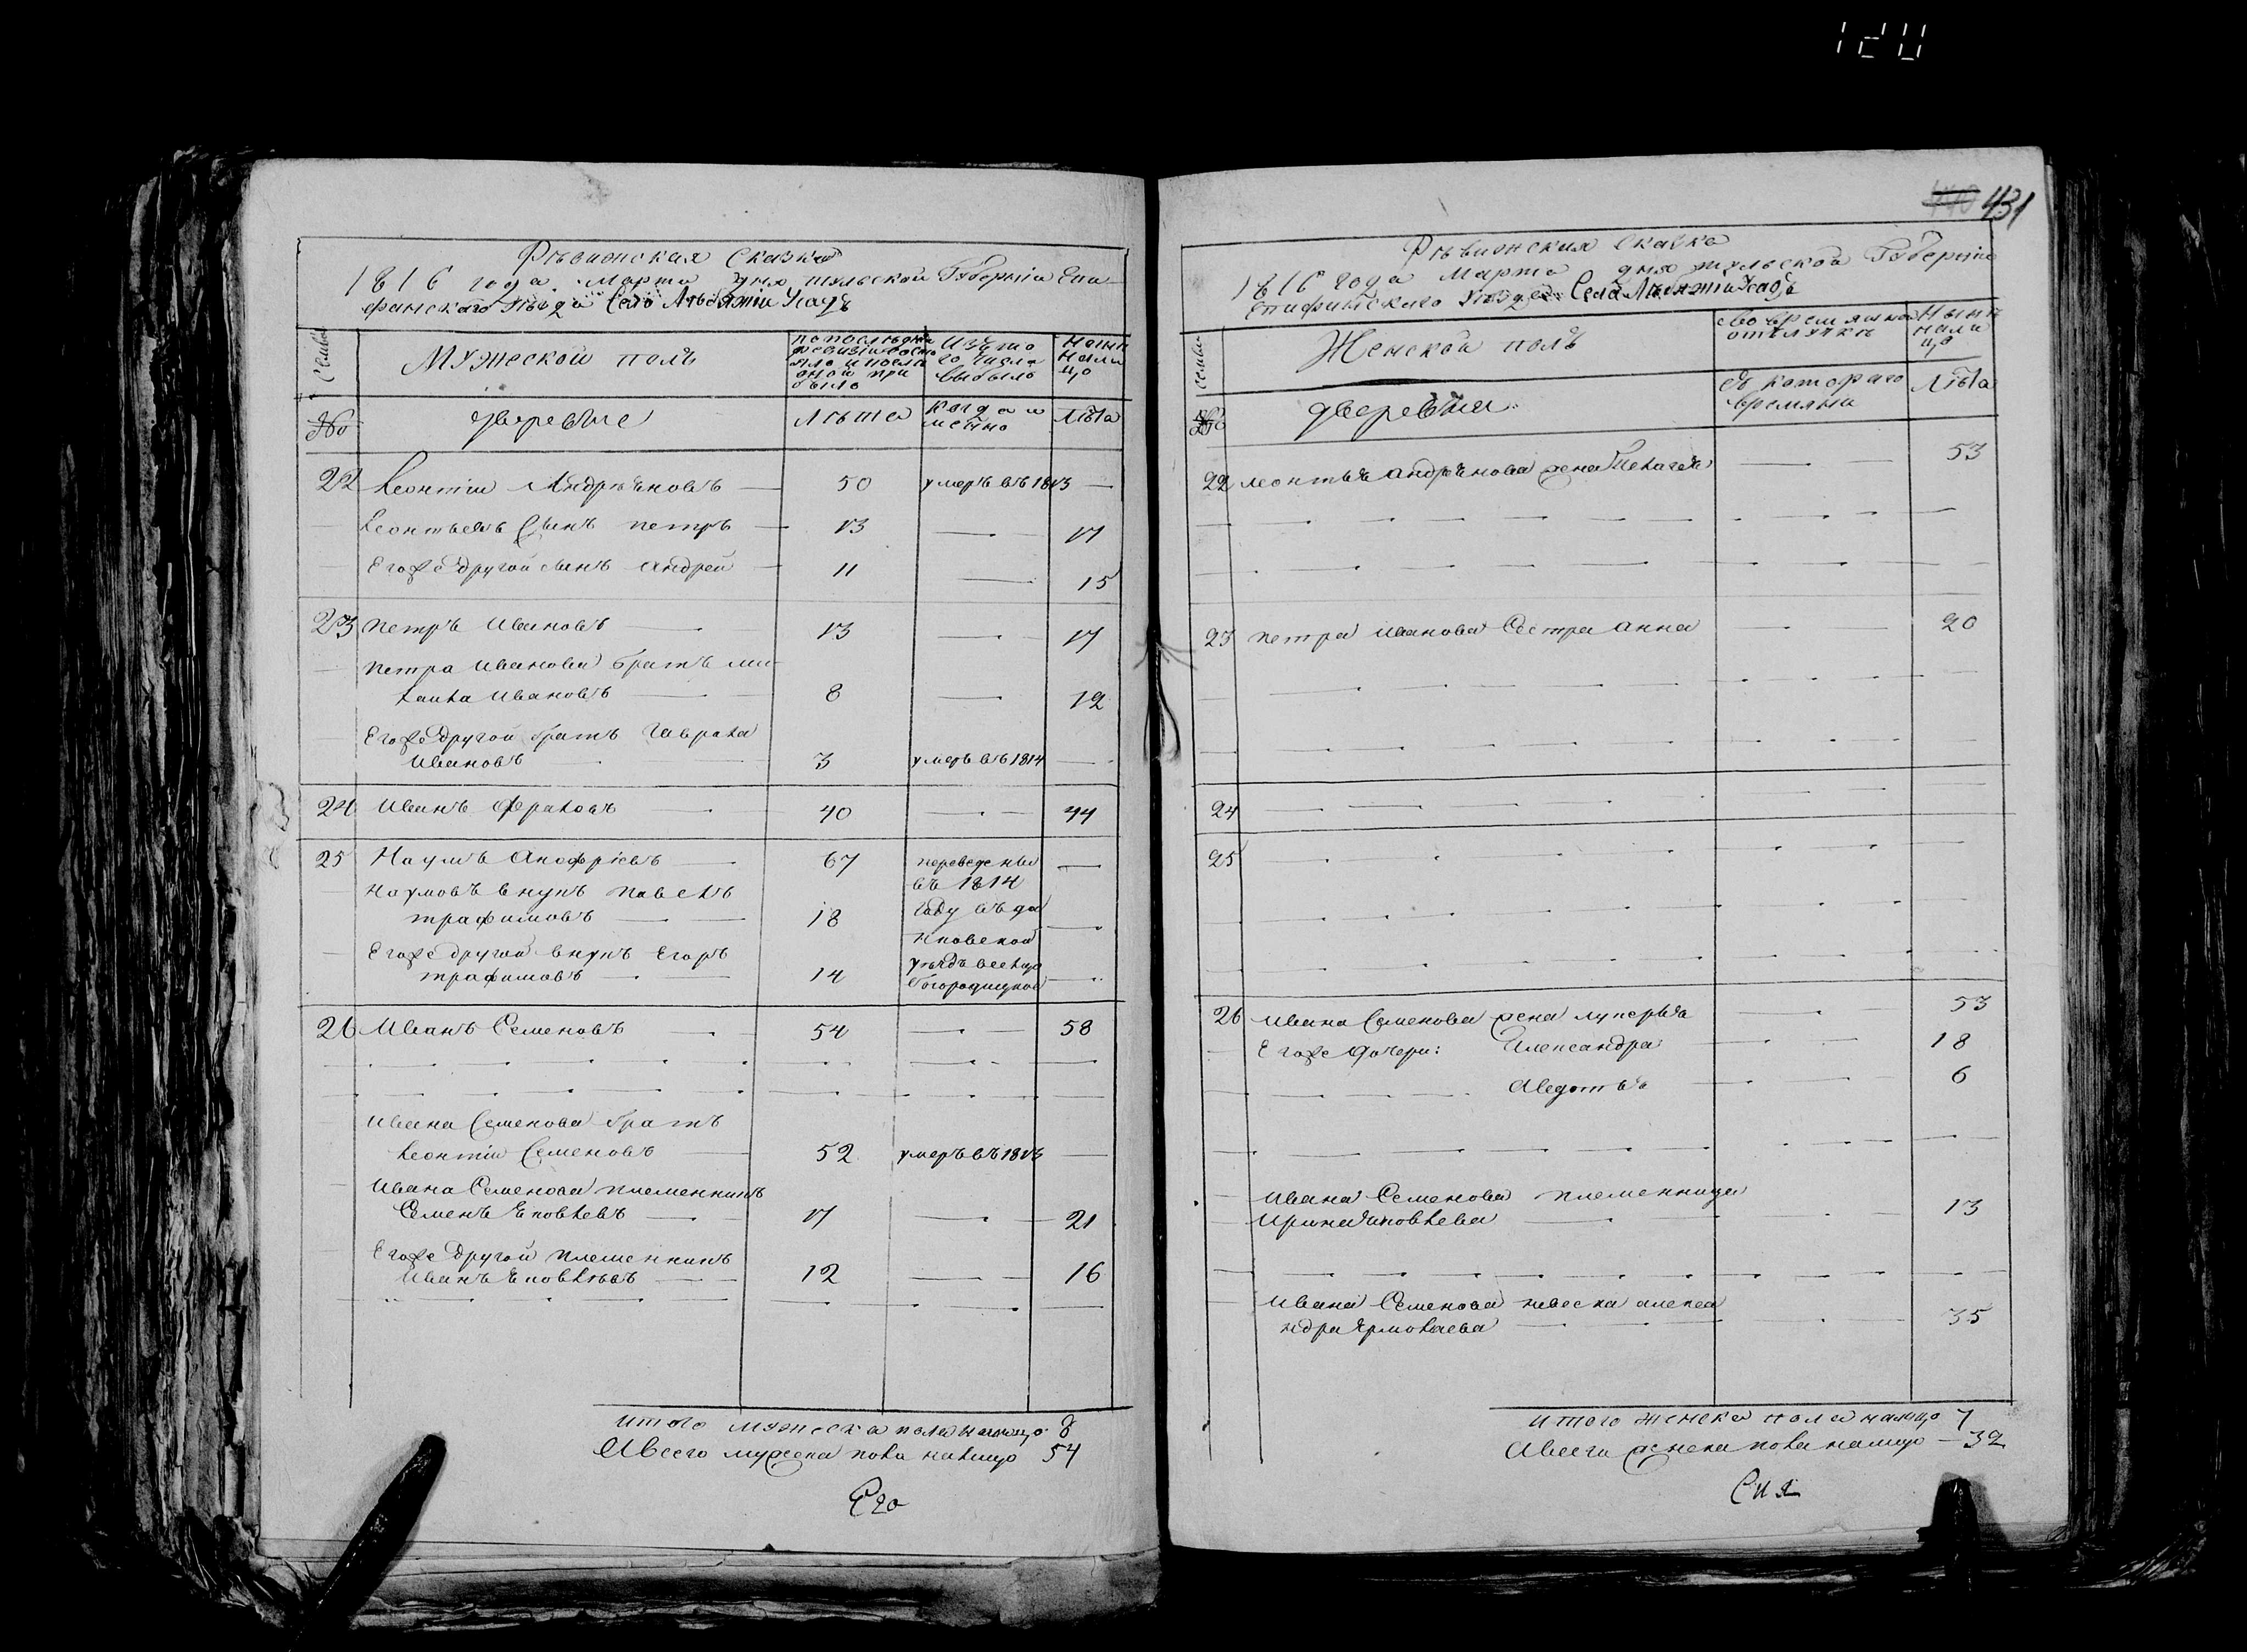 120
Ревизская Сказка
1816 года Марта дня тульской Губерніи Епи-
фанскаго Уезда Село Усадъ
Семьи
Мужеской полъ
по последней ревизіи состояло и после оной прибыло
Изъ того числа выбыло
Ныне на лицо
№
дворевые
Лета
когда и мянно
Лѣта
22 Леонтіи Андреяновъ 50 умеръ въ 1813
Леонтьевъ Сынъ петръ 13 17
Егоже другой сынъ Андрей 11 15
23 петръ Ивановъ 13 17
петра Иванова братъ ми-
хаила Ивановъ 8 12
Егоже другой братъ Гаврила
Ивановъ 3 умеръ въ 1814
24 Иванъ Фраловъ 40 44
25 Наумъ Анофріевъ 67 переведены
въ 1814
Наумовъ внукъ павелъ
трафимовъ 18 году въ да
нковской
Егоже другой внукъ Егоръ
трафимовъ 14 уездъ в сельцо
богородицкое
26 Иванъ Семеновъ 54 58
Ивана Семенова братъ
Леонтіи Семеновъ 52 умеръ въ 1813
Ивана Семенова племенникъ
Семенъ Яковлевъ 17 21
Егоже другой племенникъ
Иванъ Яковлевъ 12 16
итого мужеска пола налицо 8
Авсего мужеска пола налицо 54
Его
431
Ревизския Сказка
1816 года Марта дня тульской Губерніи
Епифанскаго Уезда Села Усадъ
Семьи
Женской полъ
во времянной отлучке
Ныне на лицо
№
дворевыя
Съ котораго времяни
Лѣта
22 леонтья андреянова жена Пелагея 53
23 петра иванова Сестра анна 20
24
25
26 Ивана Семенова жена лукерья 53
Егоже дочери: Александра 18
Авдотья 6
Ивана Семенова племенница
Ирина Яковлева 13
Ивана Семенова невеска алекса
ндра Ярмолаева 35
итого женска пола налицо 7
Авсего женска пола налицо 32
Сия